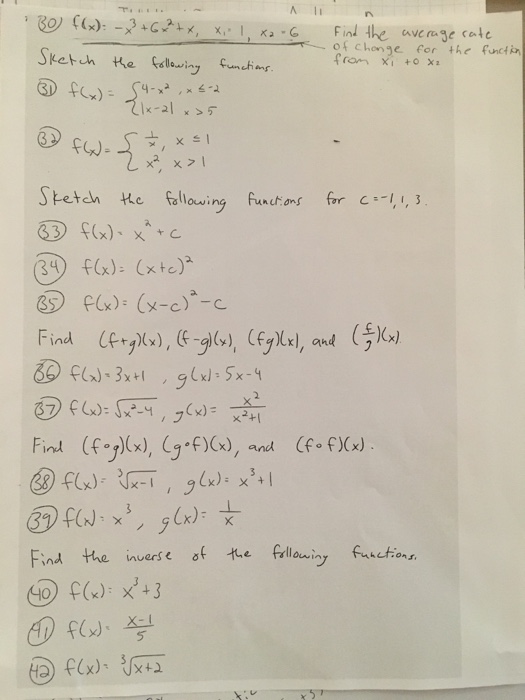 30) f(x) = -x³+6x²+x, x₁ = 1, x₂ = 6 Find the average rate
of change for the function
from x₁ to x₂
Sketch the following functions.
31) f(x) = { 4-x², x ≤ -2
|x-2| x > 5
32) f(x) = { 1/x, x ≤ 1
x², x > 1
Sketch the following functions for c = -1, 1, 3.
33) f(x) = x² + c
34) f(x) = (x+c)²
35) f(x) = (x-c)² - c
Find (f+g)(x), (f-g)(x), (fg)(x), and (f/g)(x).
36) f(x) = 3x+1, g(x) = 5x-4
37) f(x) = √x²-4, g(x) = x²/x²+1
Find (f∘g)(x), (g∘f)(x), and (f∘f)(x).
38) f(x) = ∛x-1, g(x) = x³+1
39) f(x) = x³, g(x) = 1/x
Find the inverse of the following functions.
40) f(x) = x³+3
41) f(x) = x-1/5
42) f(x) = ∛x+2